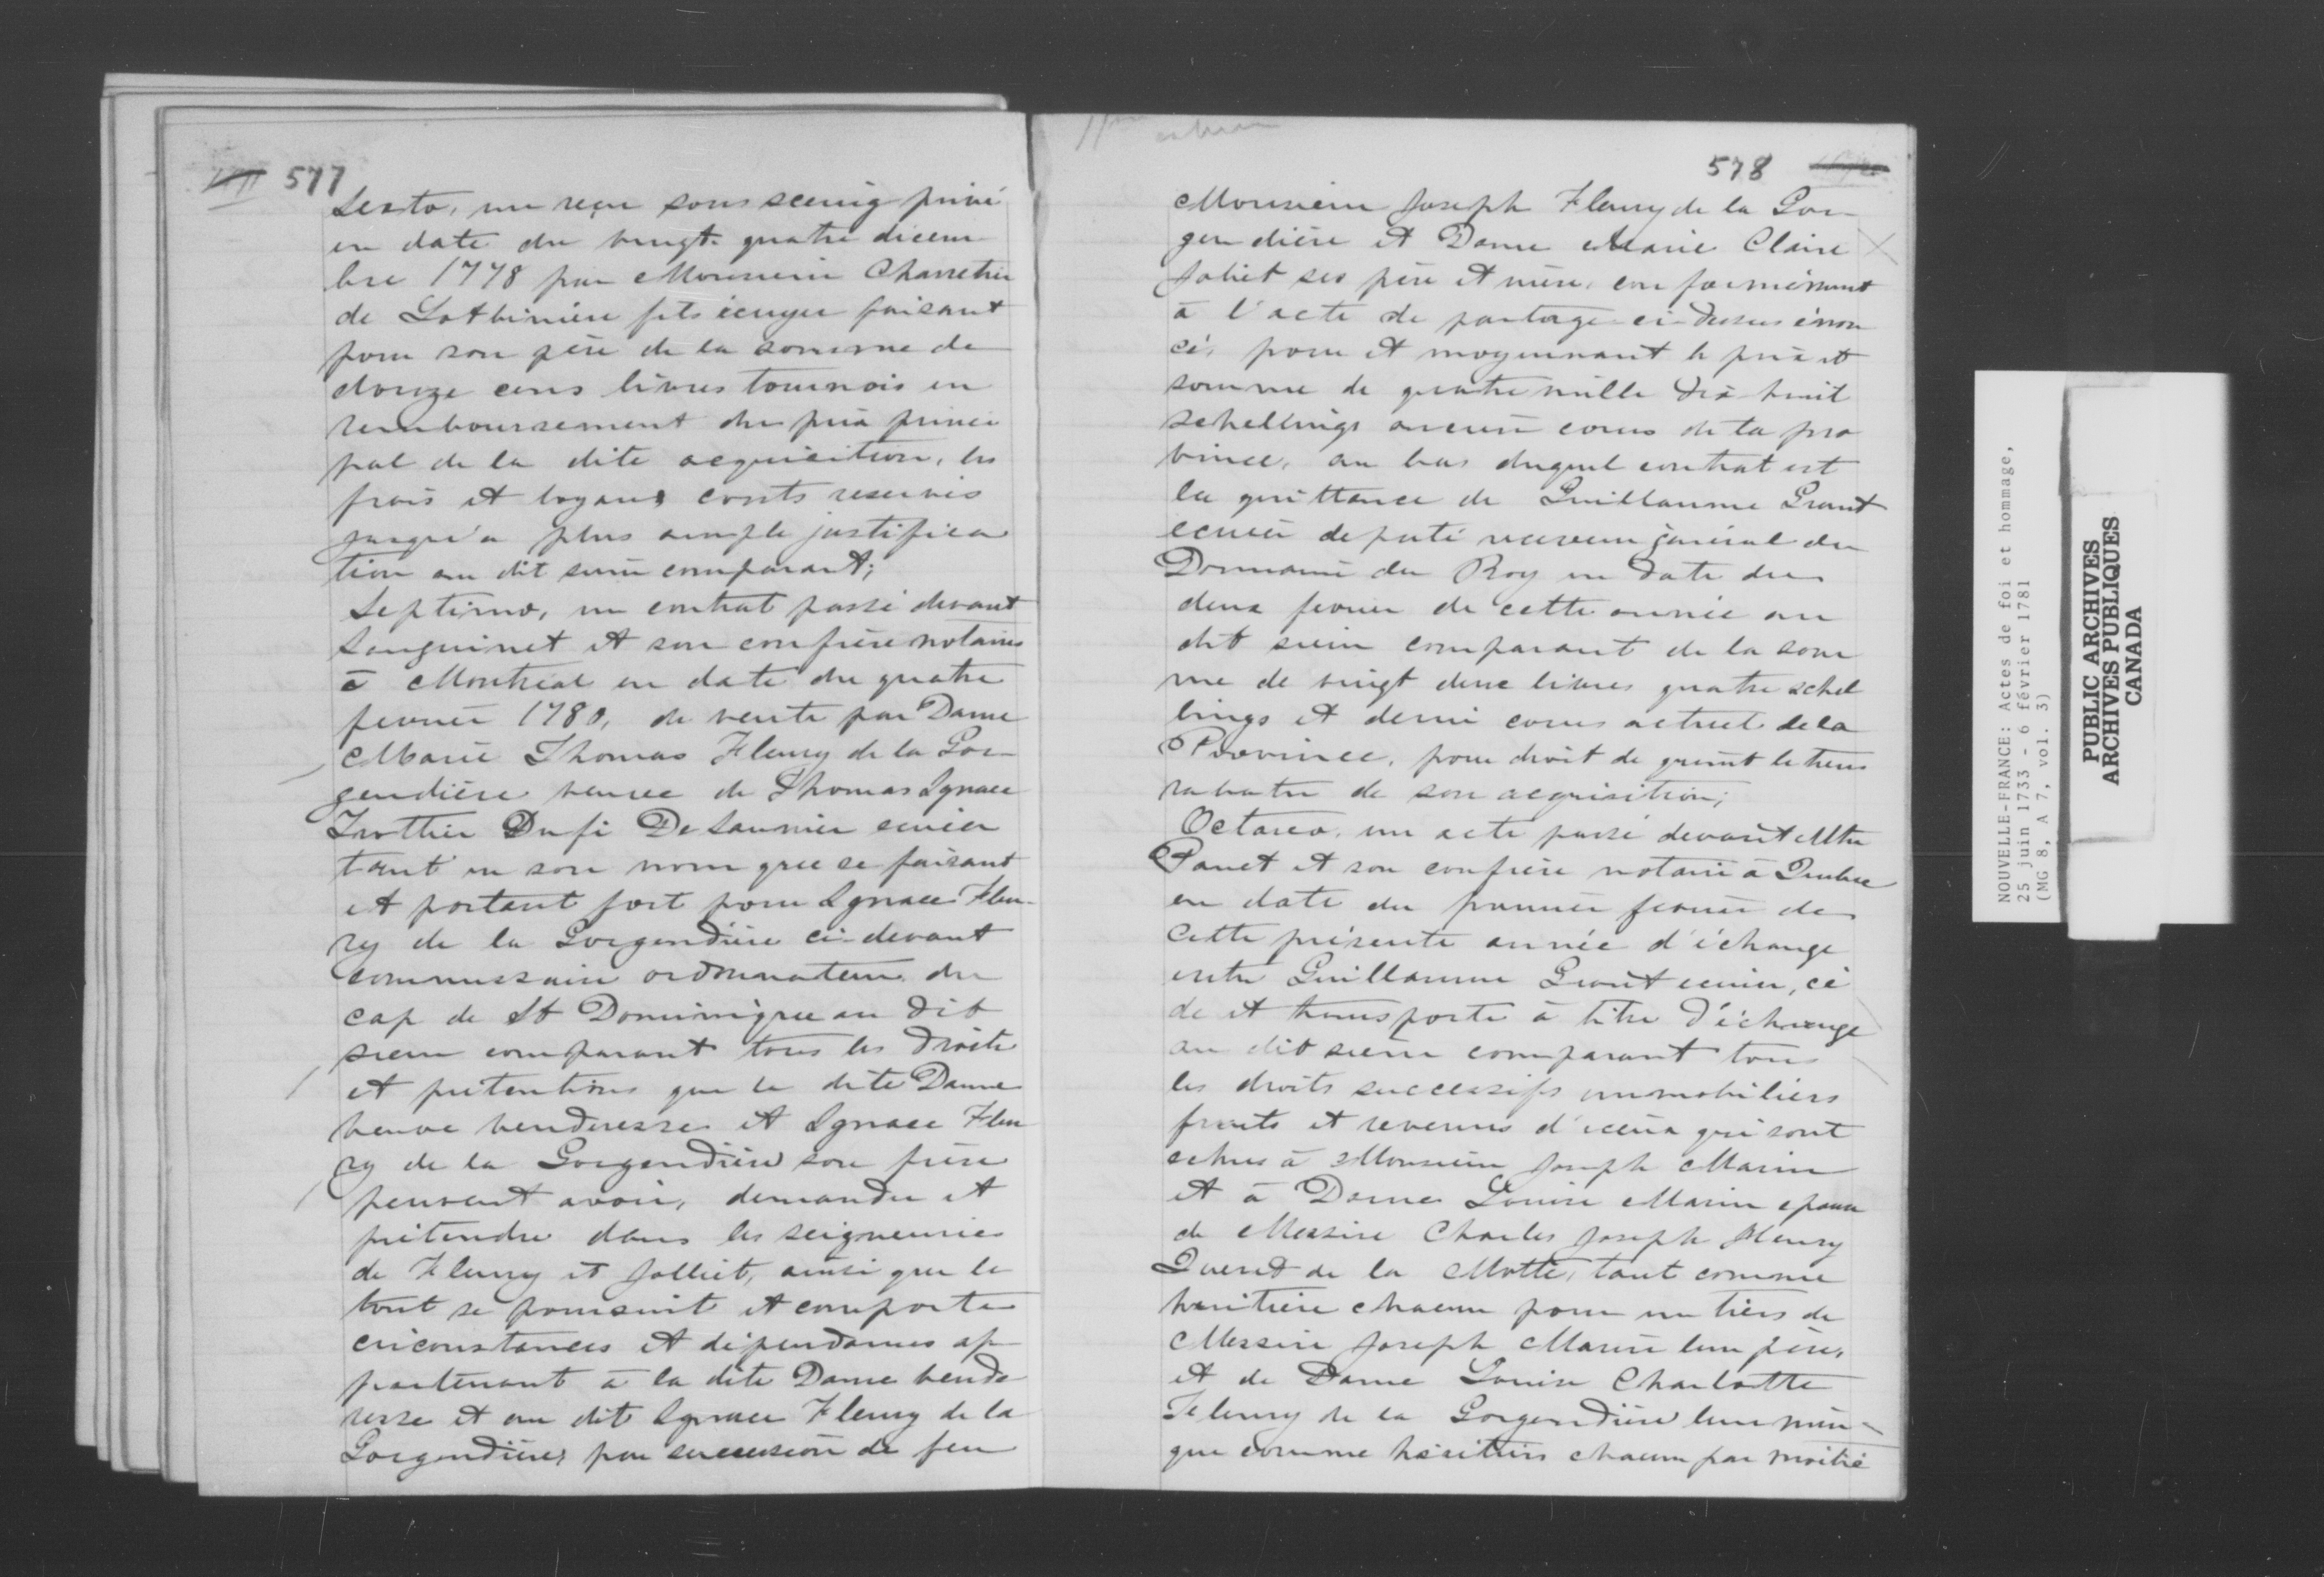 577
Sexto, un reçu sous seeing privé
en date du vingt quatre décem
bre 1778 par Monsieur Chartier
de Lotbiniere fils écuyer faisant
pour son père de la somme de
douze cens livres tournois en
remboursement du prix princi
pal de la dite acquisition, les
frais et loyaux couts reservés
jusqu'a plus ample justifica
tion au dit sieur comparant;
Septimo, un contrat passé devant
Sanguinet et son confrère notaires
à Montréal en date du quatre
fevrier 1780, de vente par Dame
Marie Thomas Fleury de la Gor-
gendière veuve de Thomas Ignace
Trottier Dufi Desaunier ecuier
tant en son nom que se faisant
et portant fort pour Ignace Fleu-
ry de la Gorgendière ci-devant
commissaire ordonnateur du
cap de St Dominique au dit
sieur comparant tous les droits
et prétentions que la dite Dame
veuve venderesse et Ignace Fleu
ry de la Gorgendière son frère
peuvent avoir, demander et
prétendre dans les seigneuries
de Fleury et Jolliet, ainsi que le
tout se poursuit et comporte
circonstances et dépendances ap
partenant à la dite Dame vende
resse et au dit Ignace Fleury de la
Gorgendière, par succession de feu
578
Monsieur Joseph Fleury de la Gor-
gendière et Dame Marie Claire
Joliet ses père et mère, conformément
à l'acte de partage ci-dessus énon
cé, pour et moyennant le prix et
somme de quatre mille dix huit
schellings ancien cours de la pro
vince, au bas duquel contrat est
la quittance de Guillaume Grant
ecuier deputé receveur général du
Domaine du Roy en date du
deux fevrier de cette année au
dit sieur comparant de la som
me de vingt deux livres quatre schel
lings et demi cours actuel de la
Province, pour droit de quint le tiers
rabatu de son acquisition;
Octavo, un acte passé devant Mtre
Panet et son confrère notaire à Quebec
en date du premier fevrier de
cette présente année d'échange
entre Guillaume Grant ecuier, cé
de et transporte à titre d'échange
au dit sieur comparant tous
les droits successifs immobiliers
fruits et revenus d'iceux qui sont
echus à Monsieur Joseph Marin
et à Dame Louise Marin epouse
de Messire Charles Joseph Henry
de la Motte, tant comme
heritière chacun pour un tiers de
Messire Joseph Marin leur père,
et de Dame Louise Charlotte
Fleury de la Gorgendière leur mère
que comme héritiers chacun par moitié
NOUVELLE-FRANCE: Actes de foi et hommage,
25 juin 1733 - 6 février 1781
(MG 8, A 7, vol. 3)
PUBLIC ARCHIVES
ARCHIVES PUBLIQUES
CANADA